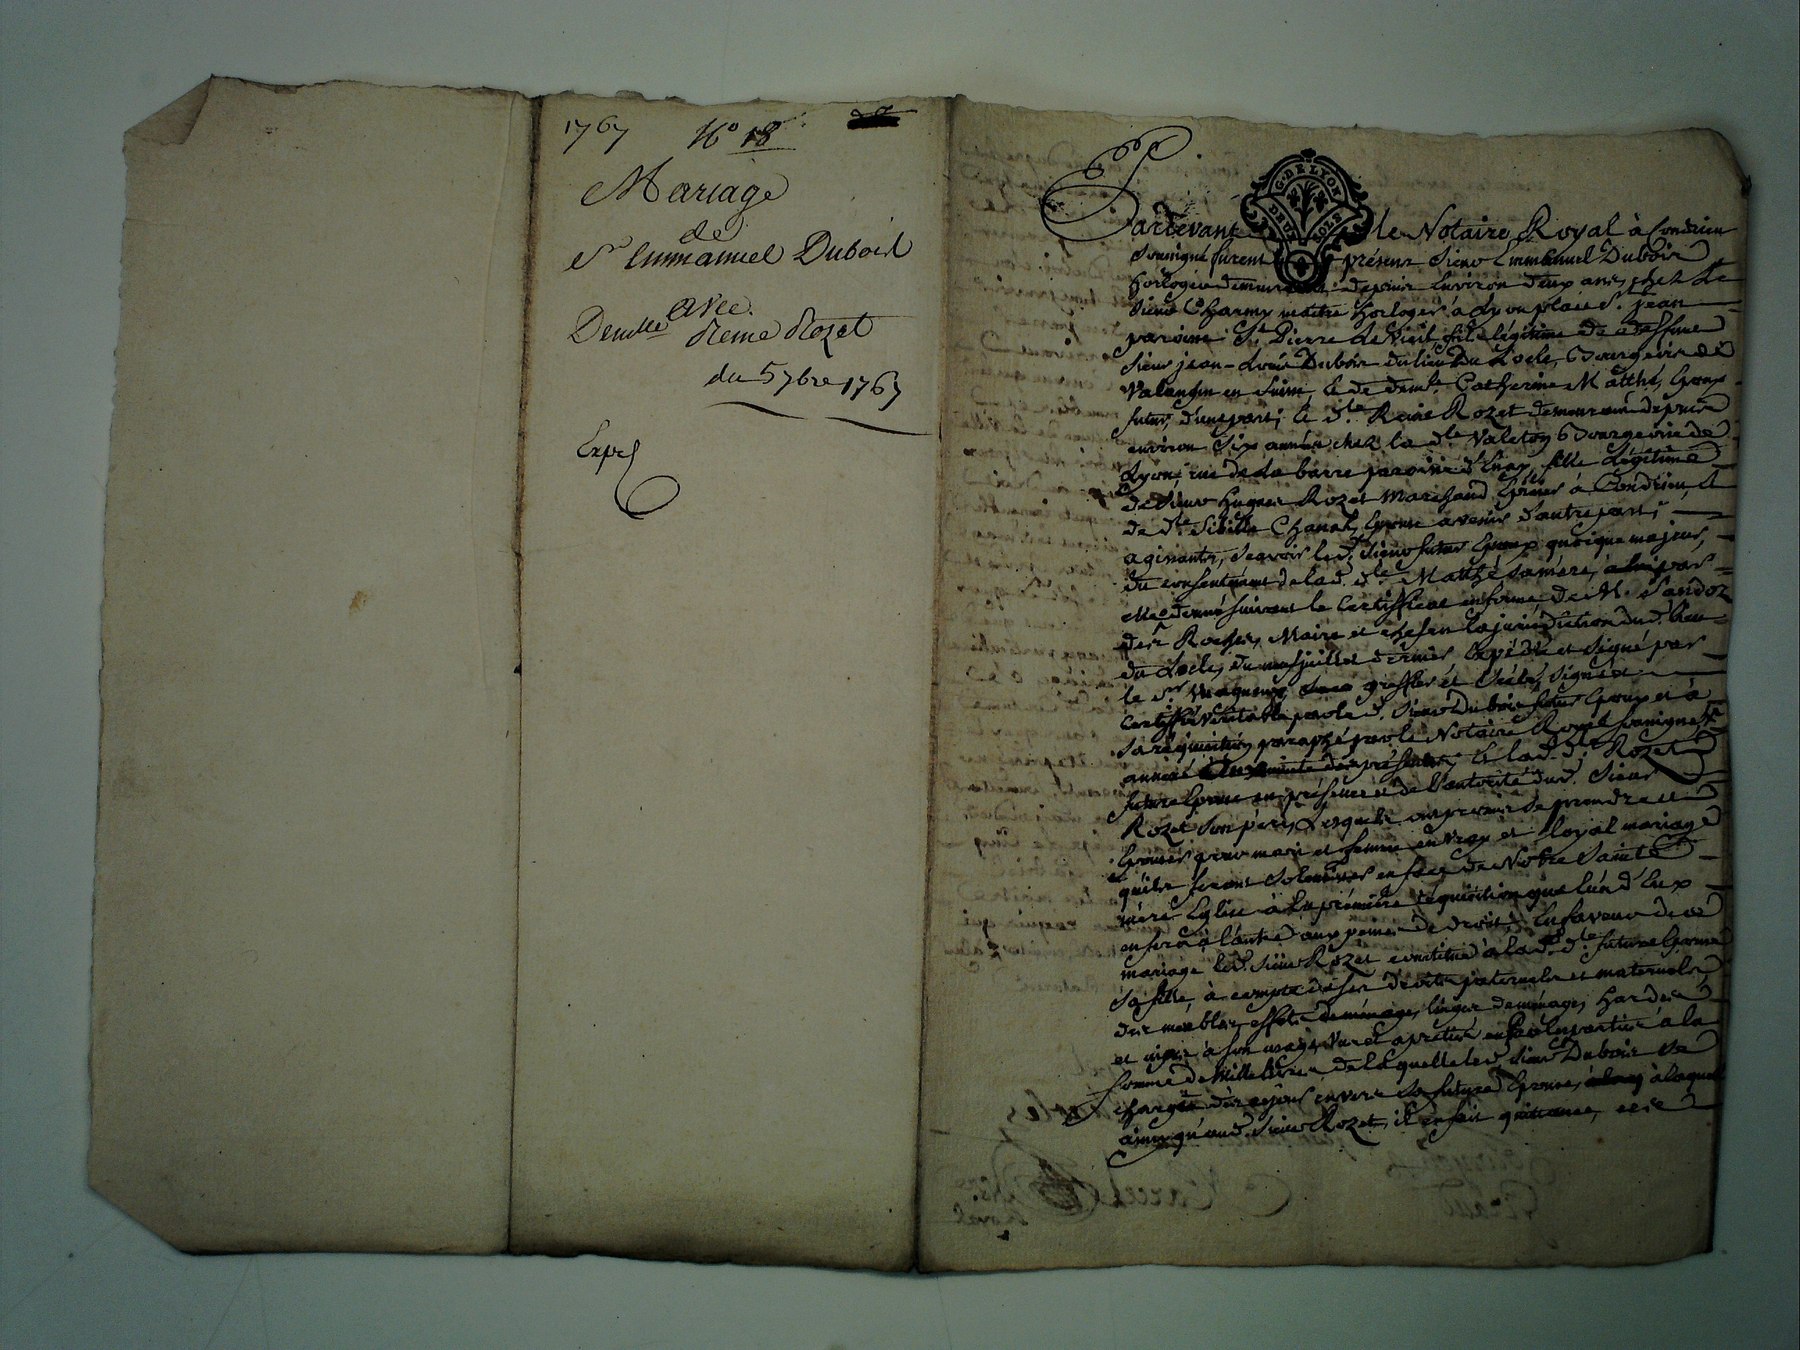 1767 No 18
Mariage
de
Sr Emmanuel Dubois
avec
Demlle Reine Rozet
du 5 7bre 1767
Expé
G. DE LYON
DEUX SOLS
Pardevant le Notaire Royal à Condrieu
soussigné furent présens Sieur Emmanuel Dubois
horloger demeurant depuis Environ deux ans, chez le
Sieur Charmy maitre horloger à Lyon place St. Jean
paroisse St. Pierre le Vieil fils légitime de deffunt
Sieur jean-Louis Dubois du lieu Du Locle, Bourgeois de
Valangin en Suisse, & de demlle Catherine Matthé, Epoux
futur, d'une part; & dlle Reine Rozet demeurant depuis
environ six années chez la dlle Valeton Bourgeoise de
Lyon, rue de La barre paroisse d'Enay, fille Légitime
de Sieur Hugues Rozet Marchand à Condrieu, &
de dlle Sibille Chanal, Epouse avenir d'autre part;
agissants, scavoir led. sieur futur Epoux quoique majeur,
du consentement de lad. dlle Matthé sa mère, par
elle donné suivant le Certifficat en forme de M. Sandoz
des Roches, Maire et chef en la jurisdiction dud. lieu
du Locle, du juillet dernier Expédié et signé par
le sr greffier et Scélé, signé &
Certiffié véritable par led. Sieur Dubois futur Epoux et à
sa réquisition paraphé par le Notaire Royal soussigné &
annexé & lad. dlle Rozet
future Epouse en présence et de l'autorité dud. Sieur
Rozet son père, Lesquels ont promis se prendre et
Epouser pour mari et femme en vray et loyal mariage
qu'ils feront solemniser en face de Notre Sainte
mère Eglise à la première réquisition que l'un d'Eux
en fera à l'autre aux peines de droit; En faveur de ce
mariage led. Sieur Rozet constitue à lad. dlle future Epouse
sa fille, à compte de ses droits paternels et maternels,
des meubles, effets de ménage, linges de ménage, hardes
et nipes à son usage, à la
somme de Mille livres de laquelle led Sieur Dubois se
charge dès aujour envers sa future Epouse, à laquelle
ainsi qu'aud. Sieur Rozet, il en fait quittance,